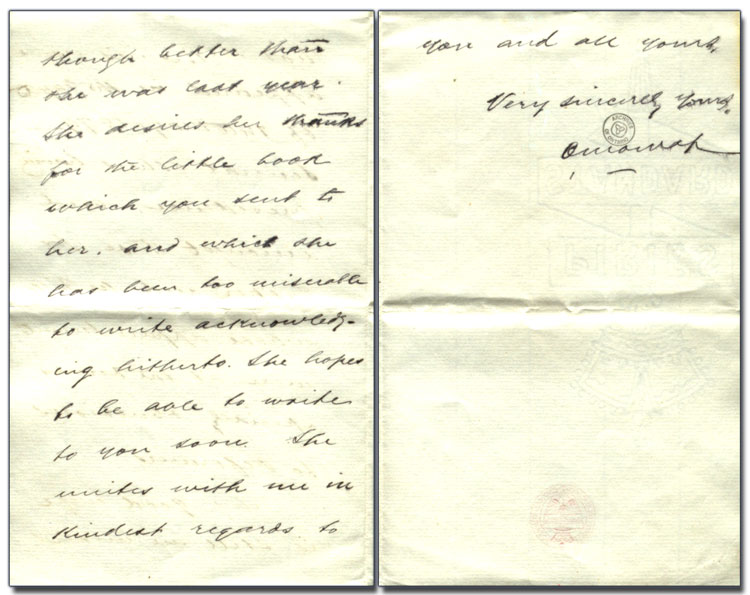 though better than
she was last year.
She desires her thanks
for the little book
which you sent to
her, and which she
has been too miserable
to write acknowledg-
ing hitherto. She hopes
to be able to write
to you soon. She
unites with me in
kindest regards to
you and all yours,
Very sincerely yours,
ARCHIVES
OF ONTARIO
O Mowat